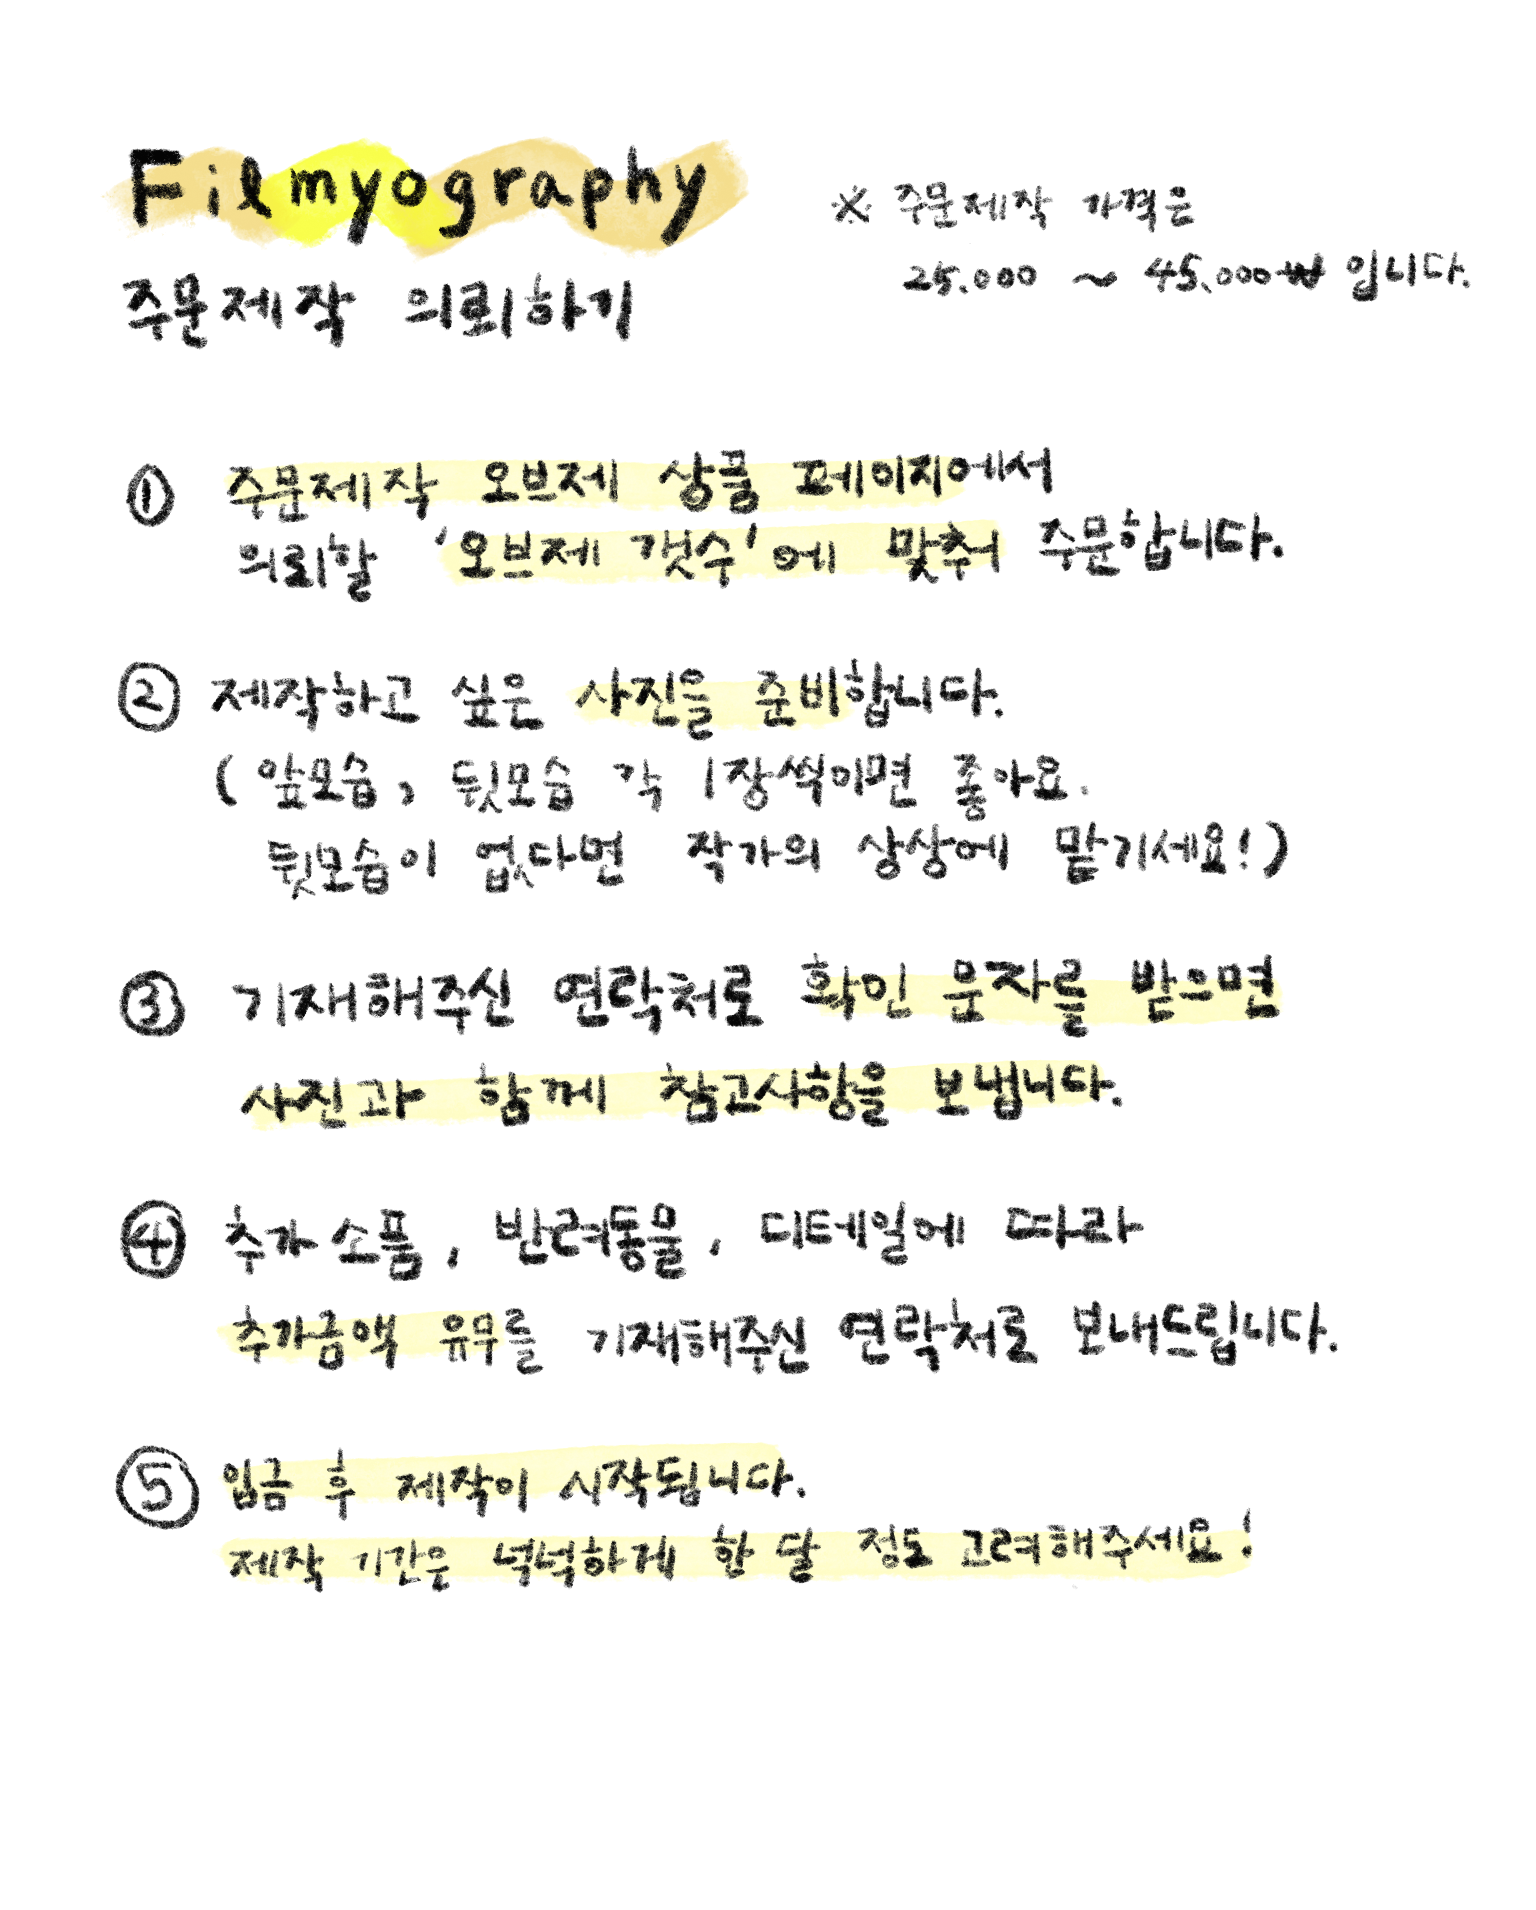 Filmyography
주문제작 의뢰하기
※ 주문제작 가격은
25.000 ~ 45.000₩ 입니다.
① 주문제작 오브제 상품 페이지에서
의뢰할 '오브제 갯수'에 맞춰 주문합니다.
② 제작하고 싶은 사진을 준비합니다.
(앞모습, 뒷모습 각 1장씩이면 좋아요.
뒷모습이 없다면 작가의 상상에 맡기세요!)
③ 기재해주신 연락처로 확인 문자를 받으면
사진과 함께 참고사항을 보냅니다.
④ 추가 소품, 반려동물, 디테일에 따라
추가금액 유무를 기재해주신 연락처로 보내드립니다.
⑤ 입금 후 제작이 시작됩니다.
제작 기간은 넉넉하게 한 달 정도 고려해주세요!